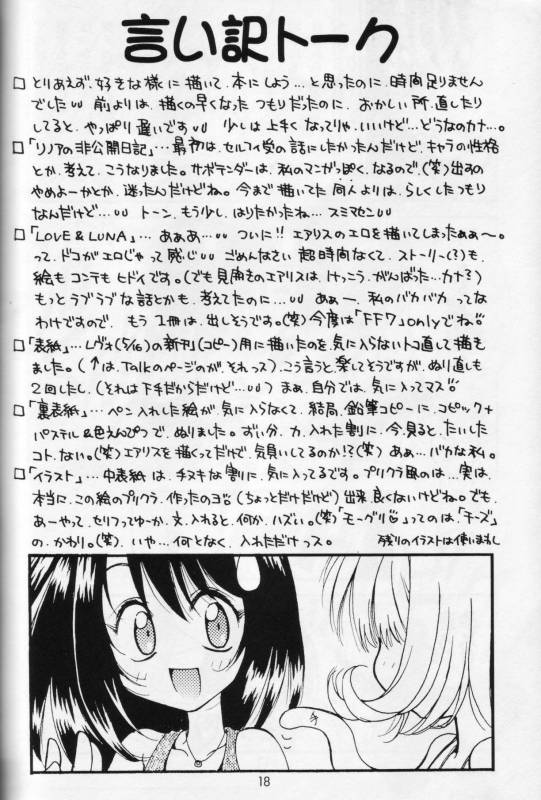 言い訳トーク
□ とりあえず、好きな様に描いて、本にしよう…と思ったのに、時間足りません
でしたUU 前よりは、描くの早くなった つもりだったのに、おかしい所、直したり
してると、やっぱり遅いですUU 少しは上手く なってりゃ、いいけど…どうなのカナ…。
□ 「リノアの非公開日記」…最初は、セルフィ受の話にしたかったんだけど、キャラの性格
とか、考えて、こうなりました。サボテンダーは、私のマンガっぽく、なるので、(笑)出すの
やめよーかとか、迷ったんだけどね。今まで描いてた同人よりは、らしくしたつもり
なんだけど…UU トーン、もう少し、はりたかったね…スミマセンUU
□ 「LOVE & LUNA」…あぁあ…UU ついに!! エアリスのエロを描いてしまったぁぁ〜。
って、ドコがエロじゃって感じUU ごめんなさい 超時間なくて、ストーリー(?)も、
絵もコンテもヒドイです。(でも見開きのエアリスは、けっこう、がんばった…カナ?)
もっとラブラブな話とかも、考えてたのに…UU あぁー、私のバカバカ ってな
わけですので、もう1冊は、出しそうです。(笑)今度は「FF7」onlyでね
□ 「表紙」…レヴォ(5/16)の新刊(コピー)用に描いたのを、気に入らないトコ直して描き
ました。(↑は、Talkのページのが、それっス)こう言うと、楽してそうですが、ぬり直しも
2回したし、(それは下手だからだけど…UU) まぁ、自分では、気に入ってマス
□ 「裏表紙」…ペン入れした絵が、気に入らなくて、結局、鉛筆コピーに、コピック+
パステル&色えんぴつで、ぬりました。ずい分、力、入れた割に、今、見ると、たいした
コト、ない。(笑)エアリスを描くってだけで、気負いしてるのか!?(笑) あぁ…バカな私。
□ 「イラスト」…中表紙は、チヌキな割に、気に入ってるです。プリクラ風のは…実は、
本当に、この絵のプリクラ、作ったのヨ (ちょっとだけだけど) 出来、良くないけどね。でも、
あーやって、セリフってゆーか、文、入れると、何か、ハズい。(笑)「モーグリ」ってのは、「チーズ」
の、かわり。(笑)、いや…何となく、入れただけっス。 残りのイラストは使いまわし
18